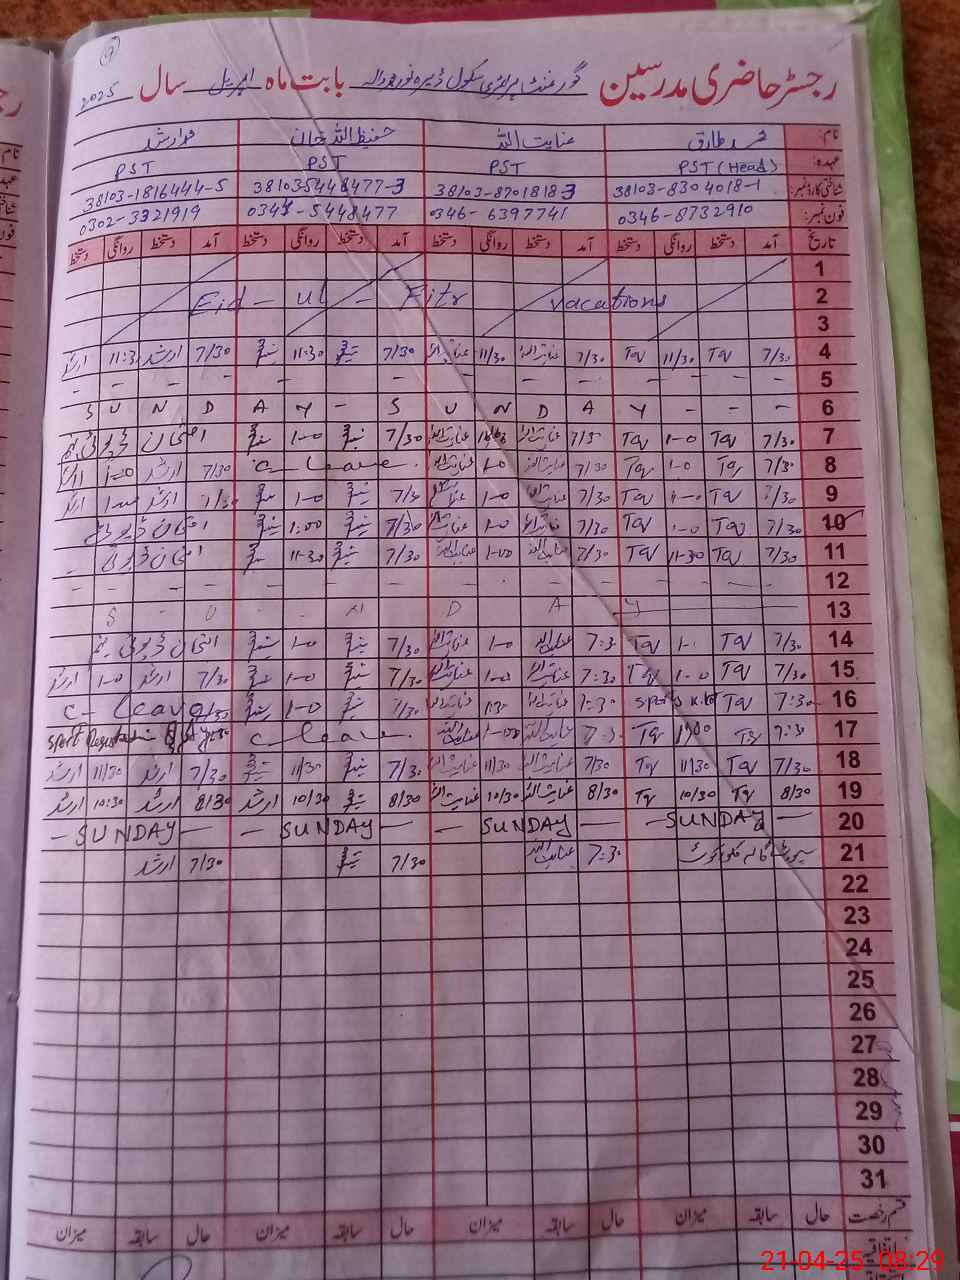 رجسٹر حاضری مدرسین گورنمنٹ پرائمری سکول ڈیرہ بابت ماہ اپریل سال 2025
نام: محمد طارق عنایت اللہ حفیظ اللہ خان ارشد
عہدہ: PST (Head) PST PST PST
شناختی کارڈ نمبر: 38103-8304018-1 38103-8701818-3 38103-5448477-3 38103-1816444-5
فون نمبر: 0346-8732910 0346-6397741 0345-5448477 0302-3321919
تاریخ آمد دستخط روانگی دستخط آمد دستخط روانگی دستخط آمد دستخط روانگی دستخط آمد دستخط روانگی دستخط
1
2 Eid - ul - Fitr vacations
3
4 7/30 Tav 11/30 Tav 7/30 عنایت اللہ 11/30 عنایت اللہ 7/30 11:30 7/30 ارشد 11:30 ارشد
5 - - - -
6 S U N D A Y - S U N D A Y - - -
7 7/30 Tav 1-0 Tav 7/30 عنایت اللہ عنایت اللہ 7/30 1-0 امتحان ڈیوٹی
8 7/30 Tav 1-0 Tav 7/30 عنایت اللہ 1-0 عنایت اللہ C-Leave. 7/30 ارشد 1-0 ارشد
9 7/30 Tav 1-0 Tav 7/30 عنایت اللہ 1-0 عنایت اللہ 7/30 1-0 7/30 ارشد ارشد
10 7/30 Tav 1-0 Tav 7/30 عنایت اللہ 1-0 عنایت اللہ 7/30 1:00 امتحان ڈیوٹی
11 7/30 Tav 11-30 Tav 7/30 عنایت اللہ 1-00 عنایت اللہ 7/30 11-30 امتحان ڈیوٹی
12 - - - -
13 S U N D A Y
14 7/30 Tav 1-0 Tav 7:30 عنایت اللہ 1-0 عنایت اللہ 7/30 1-0 امتحان ڈیوٹی
15 7/30 Tav 1-0 Tav 7:30 عنایت اللہ 1-0 عنایت اللہ 7/30 1-0 7/30 ارشد 1-0 ارشد
16 7:30 Tav sports عنایت اللہ عنایت اللہ 7/30 1-0 C-Leave
17 7:30 Tav Tav 7:30 عنایت اللہ 1-00 عنایت اللہ C-Leave. Sport
18 7/30 Tav 11/30 Tav 7/30 عنایت اللہ 11/30 عنایت اللہ 7/30 11/30 7/30 ارشد 11/30 ارشد
19 8/30 Tav 10/30 Tav 8/30 عنایت اللہ 10/30 عنایت اللہ 8/30 10/30 ارشد 8/30 ارشد 10:30 ارشد
20 - SUNDAY - - SUNDAY - - SUNDAY - - SUNDAY -
21 7:30 عنایت اللہ 7/30 7/30 ارشد
22
23
24
25
26
27
28
29
30
31
قسم رخصت حال سابقہ میزان حال سابقہ میزان حال سابقہ میزان حال سابقہ میزان
اتفاقیہ
21-04-25 08:29